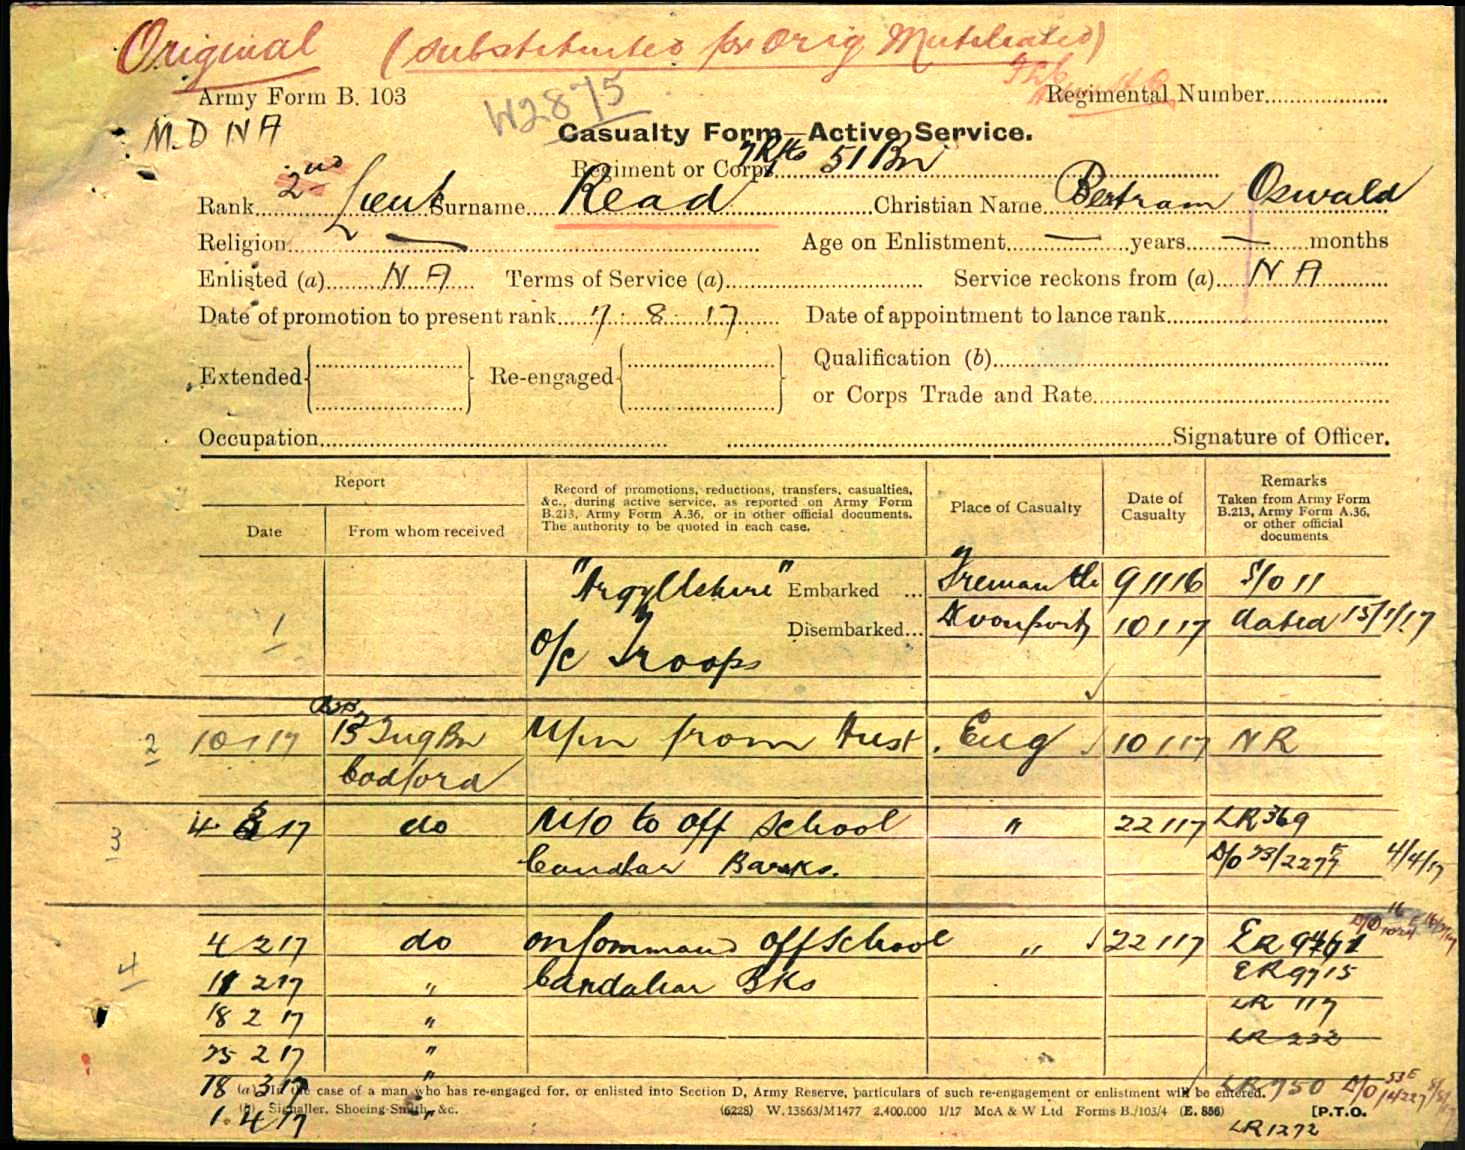 Original (substituted for Orig Mutilated)
Army Form B. 103
Regimental Number
W2875
M.D N A
Casualty Form—Active Service.
Regiment or Corps 7 Rfts 51 Bn
Rank 2nd Lieut Surname Read Christian Name Bertram Oswald
Religion — Age on Enlistment — years — months
Enlisted (a) N A Terms of Service (a) Service reckons from (a) N A
Date of promotion to present rank 7 . 8 . 17 Date of appointment to lance rank
Extended Re-engaged Qualification (b)
or Corps Trade and Rate
Occupation Signature of Officer.
Report
Date From whom received
Record of promotions, reductions, transfers, casualties,
&c., during active service, as reported on Army Form
B.213, Army Form A.36, or in other official documents.
The authority to be quoted in each case.
Place of Casualty
Date of
Casualty
Remarks
Taken from Army Form
B.213, Army Form A.36,
or other official
documents
1 "Argyllshire" Embarked ... Fremantle 9 11 16 S/O 11
Disembarked... Devonport 10 1 17 dated 15/1/17
O/C Troops
2 10 1 17 13 Trng Bn M/in from Aust. Eng 10 1 17 N R
Codford
3 4 3 17 do M/O to Off School " 22 1 17 LR 369
Candahar Barks. D/O 23/2277 E 4/4/17
4 4 2 17 do on Command Off School " 22 1 17 ER 9461
11 2 17 " Candahar Bks ER 9715
18 2 17 " LR 117
25 2 17 " LR 232
18 3 17 " LR 750 D/O
(a) In the case of a man who has re-engaged for, or enlisted into Section D, Army Reserve, particulars of such re-engagement or enlistment will be entered.
(b) Signaller, Shoeing-Smith, &c. (6228) W.13863/M1477 2,400,000 1/17 McA & W Ltd Forms B./103/4 (E. 856) [P.T.O.
1. 4 17 " LR 1272